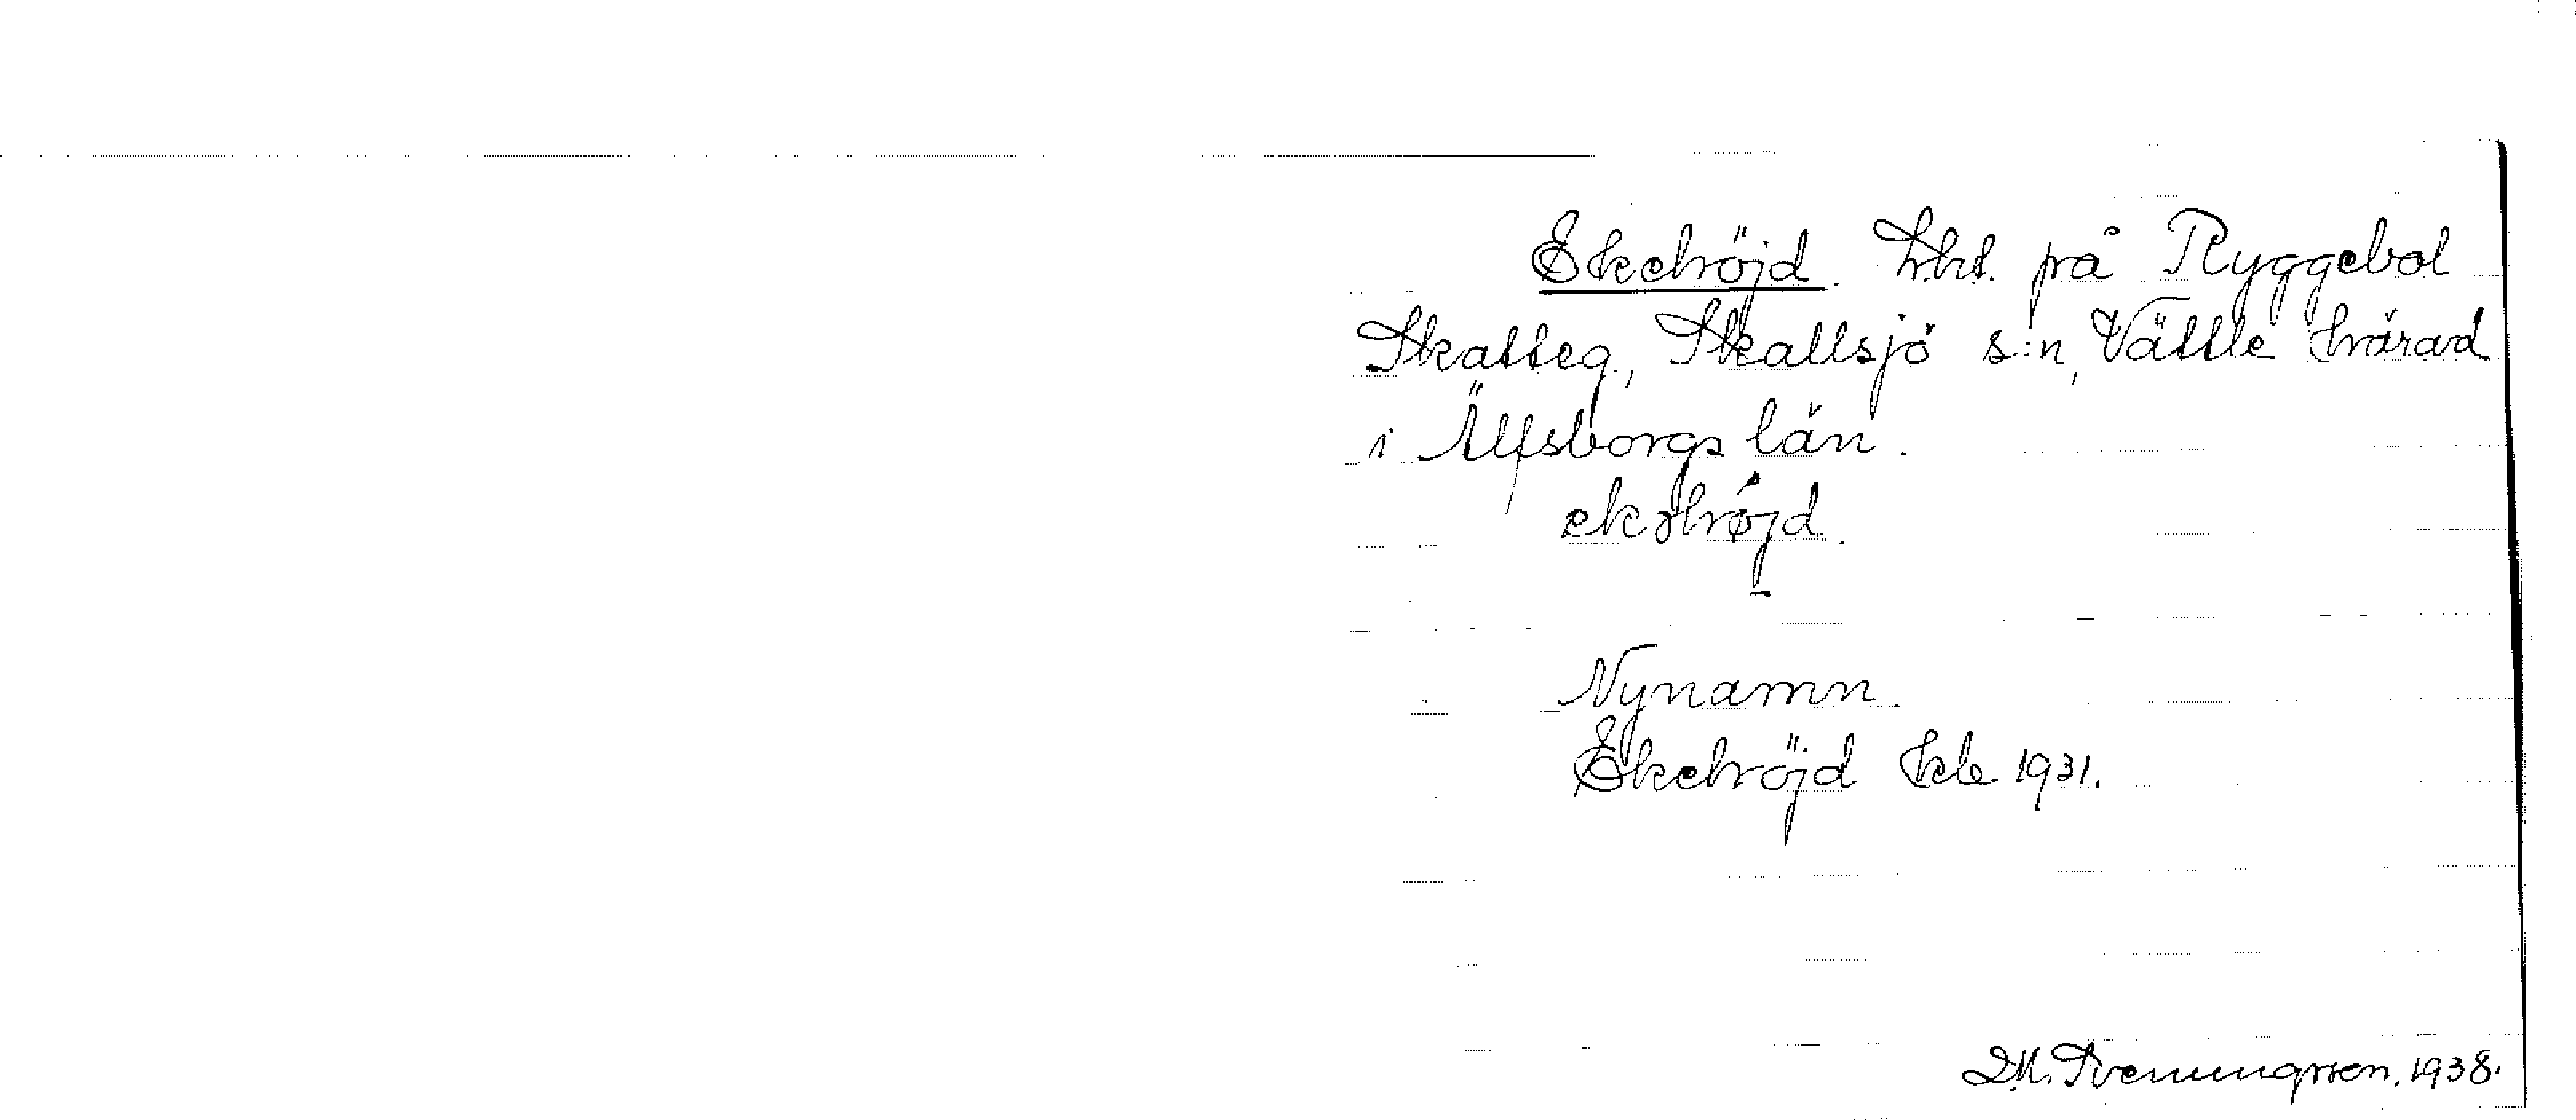 Ekehöjd. Lht. på Ryggebol
Skatteg., Skallsjö s:n, Vättle härad
i Älfsborgs län.
ekəhöjd.
Nynamn.
Ekehöjd kb 1931.
D.M. Svenningsson. 1938.